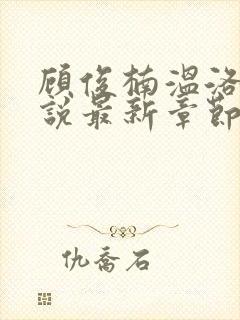 顾俊楠温洛
说最新章节
仇乔石